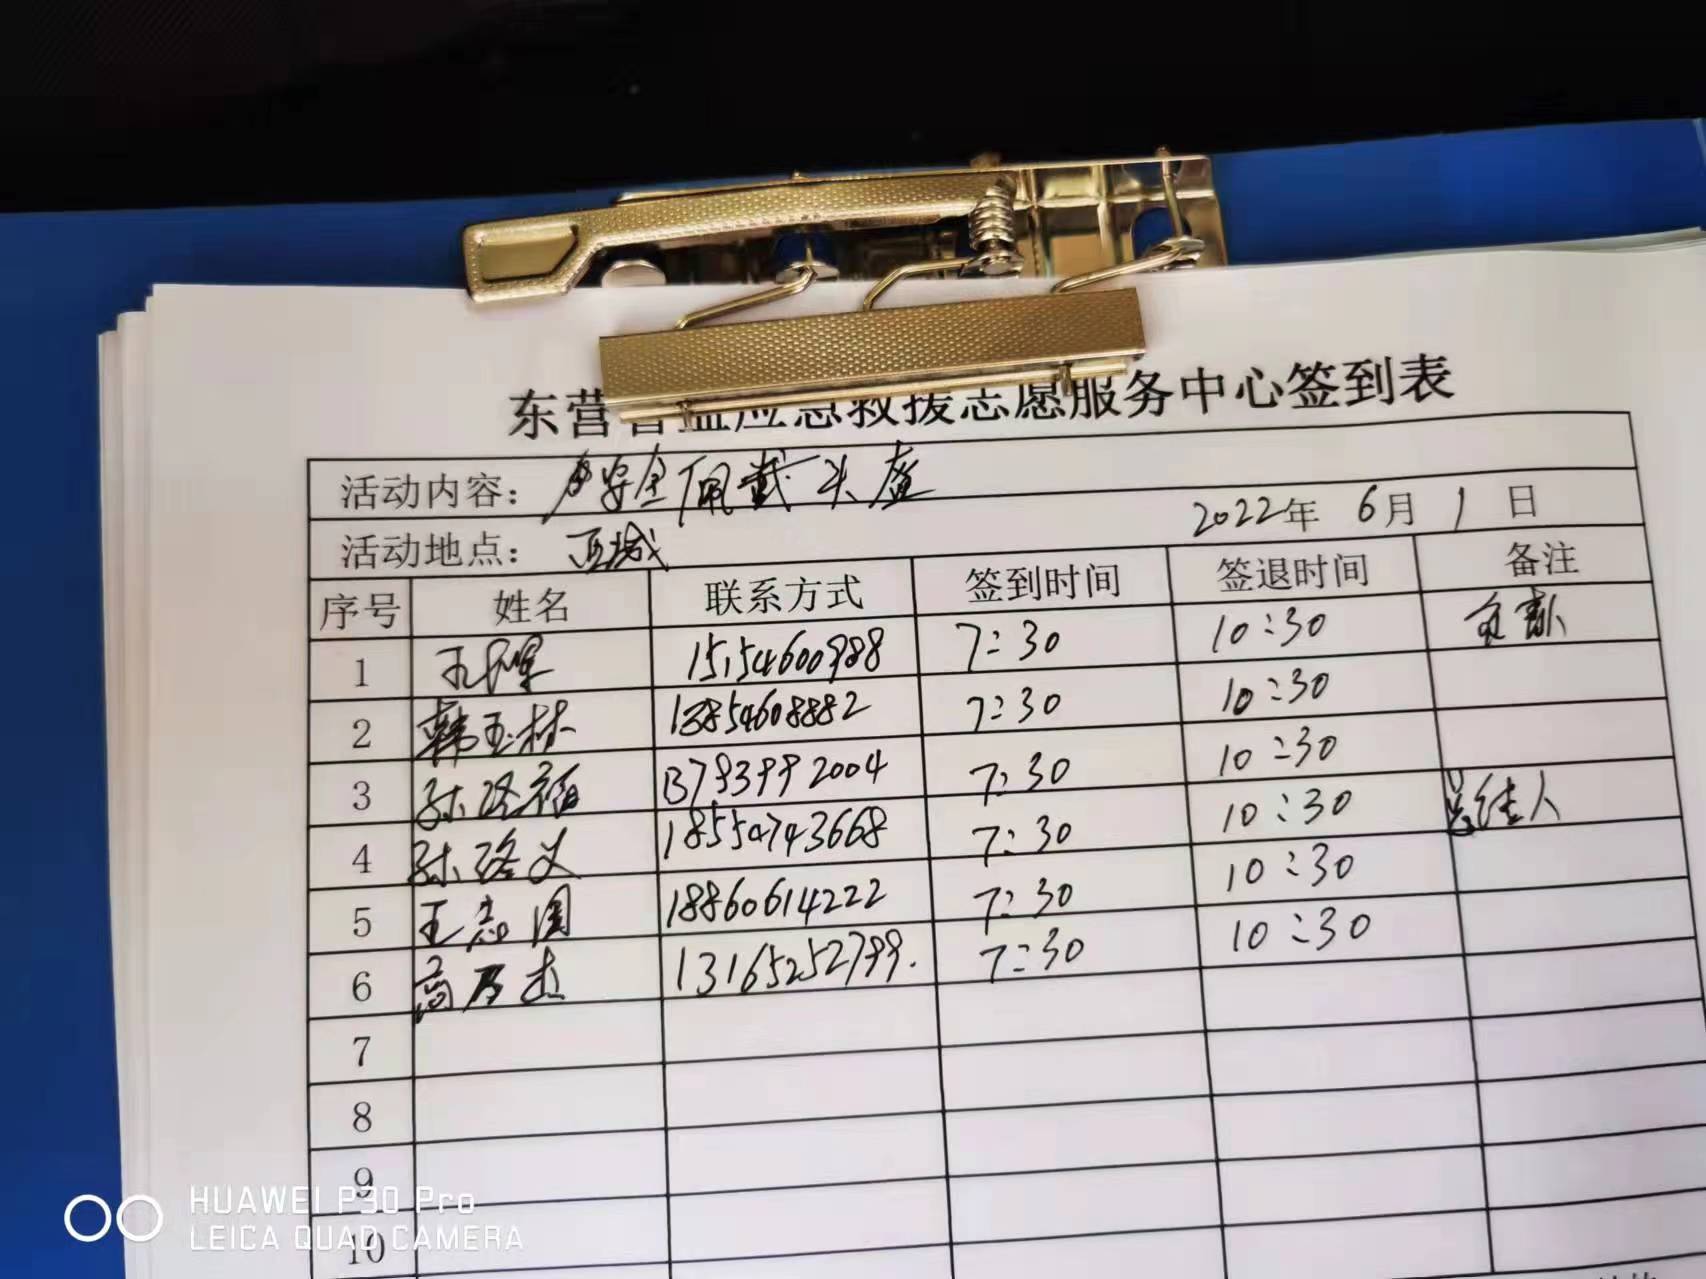 东营 应急救援志愿服务中心签到表
活动内容: 安全佩戴头盔
活动地点: 西城 2022年 6月 1 日
序号 姓名 联系方式 签到时间 签退时间 备注
1 15154600988 7:30 10:30
2 韩玉林 13854608882 7:30 10:30
3 13793992004 7:30 10:30
4 18554743668 7:30 10:30
5 王志国 18860614222 7:30 10:30
6 13165252799. 7:30 10:30
7
8
9
10
HUAWEI P30 Pro
LEICA QUAD CAMERA